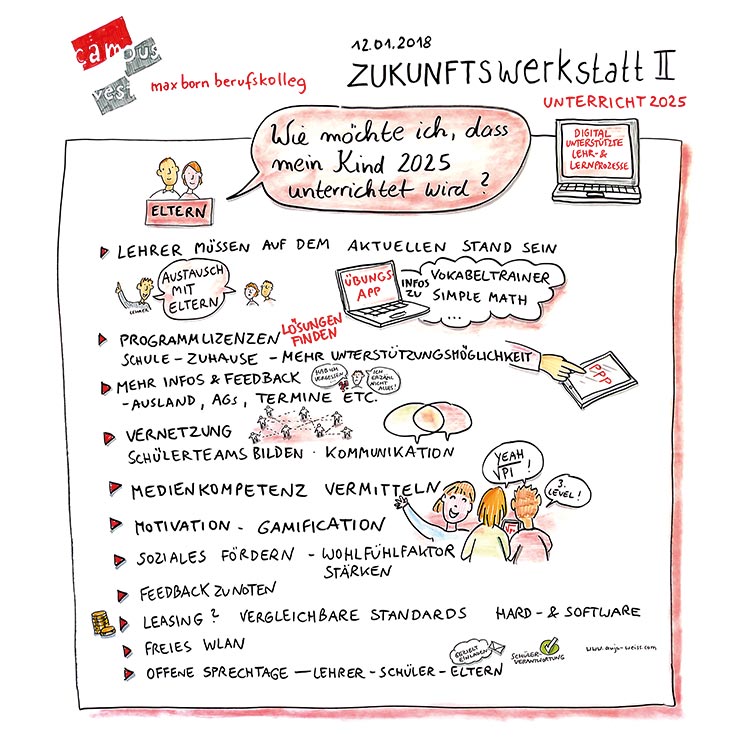 campus
west
max born berufskolleg
12.01.2018
ZUKUNFTSwerkstatt II
UNTERRICHT 2025
Wie möchte ich, dass
mein Kind 2025
unterrichtet wird?
DIGITAL
UNTERSTÜTZTE
LEHR- &
LERNPROZESSE
ELTERN
LEHRER MÜSSEN AUF DEM AKTUELLEN STAND SEIN
LEHRER
AUSTAUSCH
MIT
ELTERN
ÜBUNGS
APP
INFOS
ZU
VOKABELTRAINER
SIMPLE MATH
...
PROGRAMMLIZENZEN
LÖSUNGEN
FINDEN
SCHULE - ZUHAUSE - MEHR UNTERSTÜTZUNGSMÖGLICHKEIT
PPP
MEHR INFOS & FEEDBACK
HAB ICH
VERGESSEN
ICH
ERZÄHL
NICHT
ALLES!
- AUSLAND, AGs, TERMINE ETC.
VERNETZUNG
SCHÜLERTEAMS BILDEN · KOMMUNIKATION
MEDIENKOMPETENZ VERMITTELN
YEAH
√PI!
3.
LEVEL!
MOTIVATION - GAMIFICATION
SOZIALES FÖRDERN - WOHLFÜHLFAKTOR
STÄRKEN
FEEDBACK ZU NOTEN
LEASING? VERGLEICHBARE STANDARDS HARD- & SOFTWARE
FREIES WLAN
OFFENE SPRECHTAGE — LEHRER - SCHÜLER - ELTERN
GEZIELT
EINLADEN
SCHÜLER
VERANTWORTUNG
www.anja-weiss.com